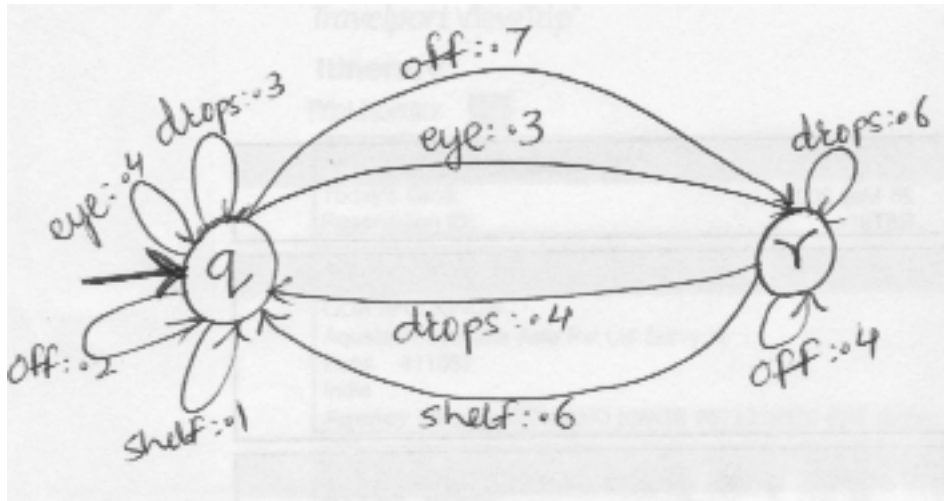 off:.7
drops:.3
eye:.3
drops:.6
eye:.4
q
r
drops:.4
off:.2
off:.4
shelf:.1
shelf:.6